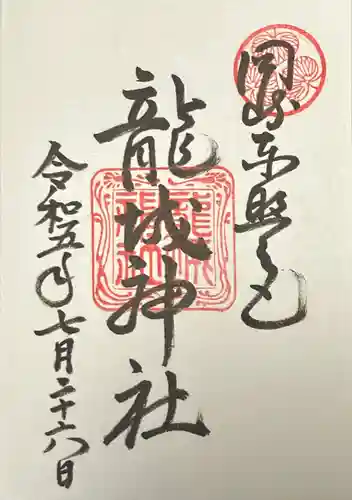 岡崎東照宮
龍城神社
令和五年七月二十六日